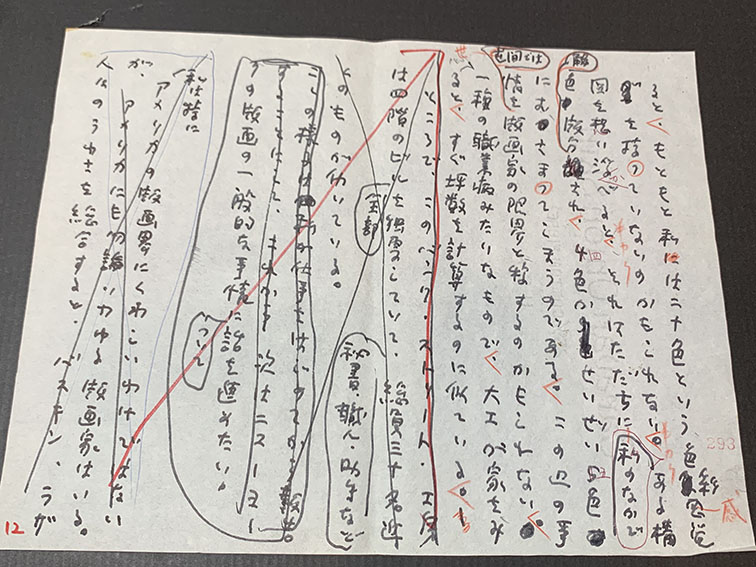 ると、もともと私には二十色という色彩感
を持っていないのかもしれない。ある構
図を想い浮べると、それはただちに私のなかで
色版分され、四色か せいぜい五色
にむ まってしまうのである。この辺の事
情を版画家の限界と称するのかもしれない。
世間では
一種の職業病みたいなもので、大工が家をみ
ると、すぐ坪数を計算するのに似ている。
ところで、このバンク・ストリート・工房
は四階のビルを していて、総員三十名近
くのものが働いている。
全部
秘書・職人・助手など
この様な
することにして、これから 次はニューヨー
クの版画の一般的な事情に話を進めたい。
ついて
私は特に
アメリカの版画界にくわしいわけではない
が、アメリカにも勿論いわゆる版画家はいる。
人々のうわさを総合すると、バスキン、ラザ
12
293